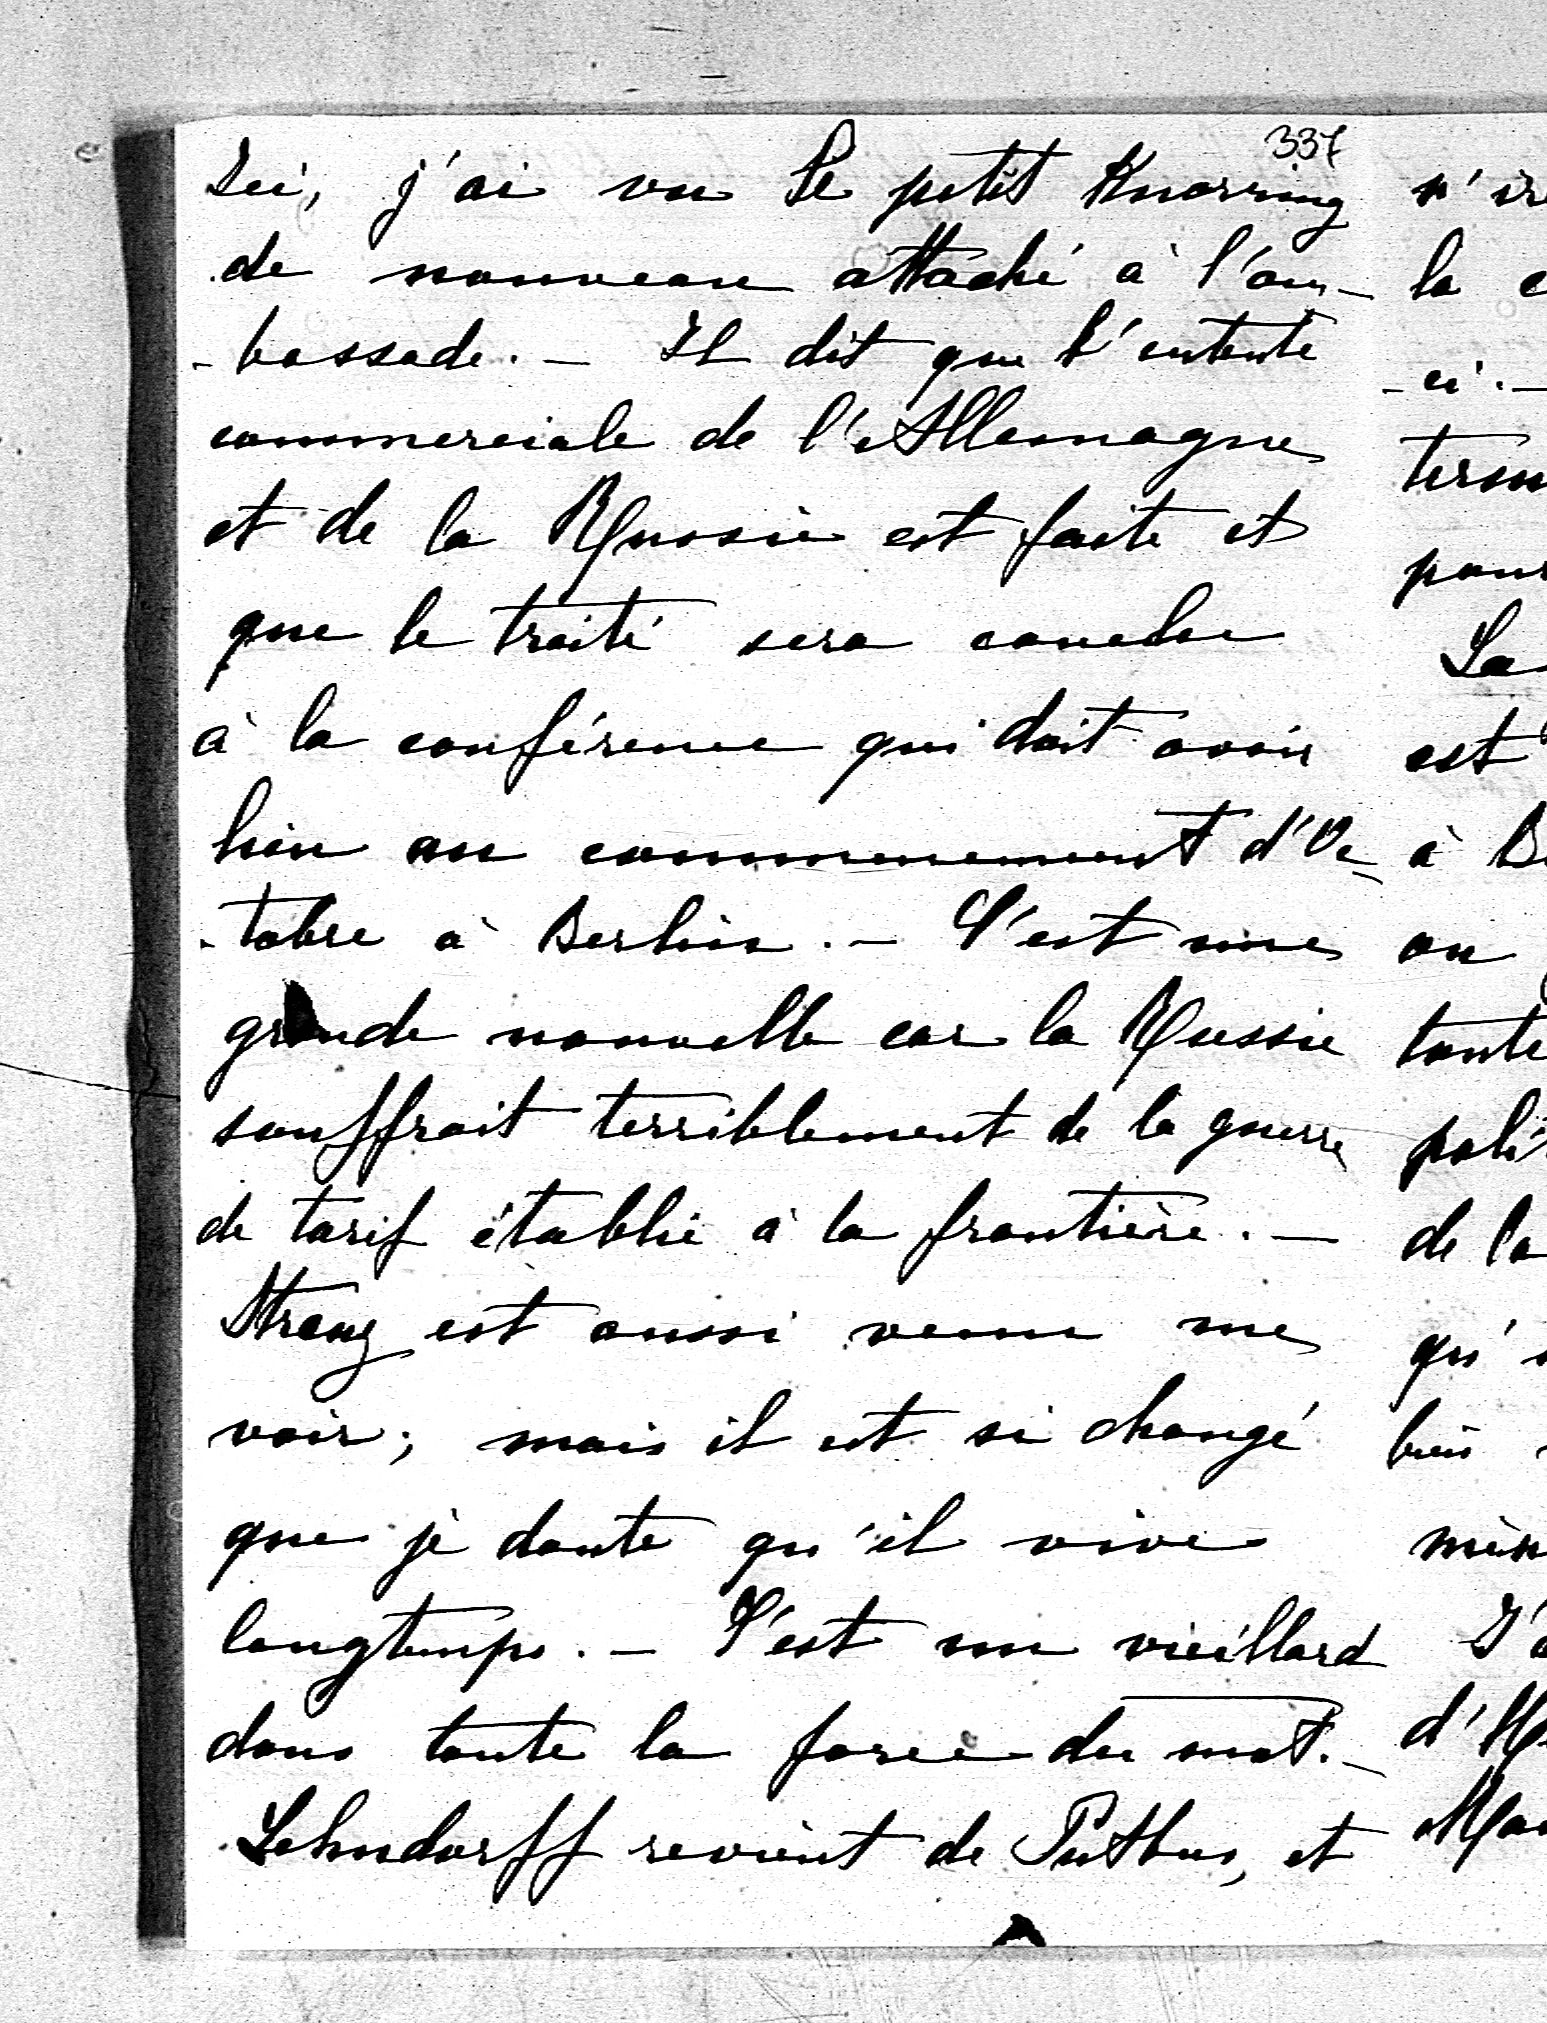 337
Ici, j'ai vu le petit Knorring
de nouveau attaché à l'am-
-bassade. - Il dit que l'entente
commerciale de l'Allemagne
et de la Russie est faite et
que le traité sera conclu
à la conférence qui doit avoir
lieu au commencement d'Oc-
-tobre à Berlin. - C'est une
grande nouvelle car la Russie
souffrait terriblement de la guerre
de tarif établie à la frontière. -
est aussi venu me
voir; mais il est si changé
que je doute qu'il vive
longtemps. - C'est un vieillard
dans toute la force du mot. -
Lehndorff revient de Putbus, et
n'ir
la c
-ci. -
term
pour
La
est
à B
on
toute
poli
de la
qu'i
bien
mên
J'a
d'H
Ma